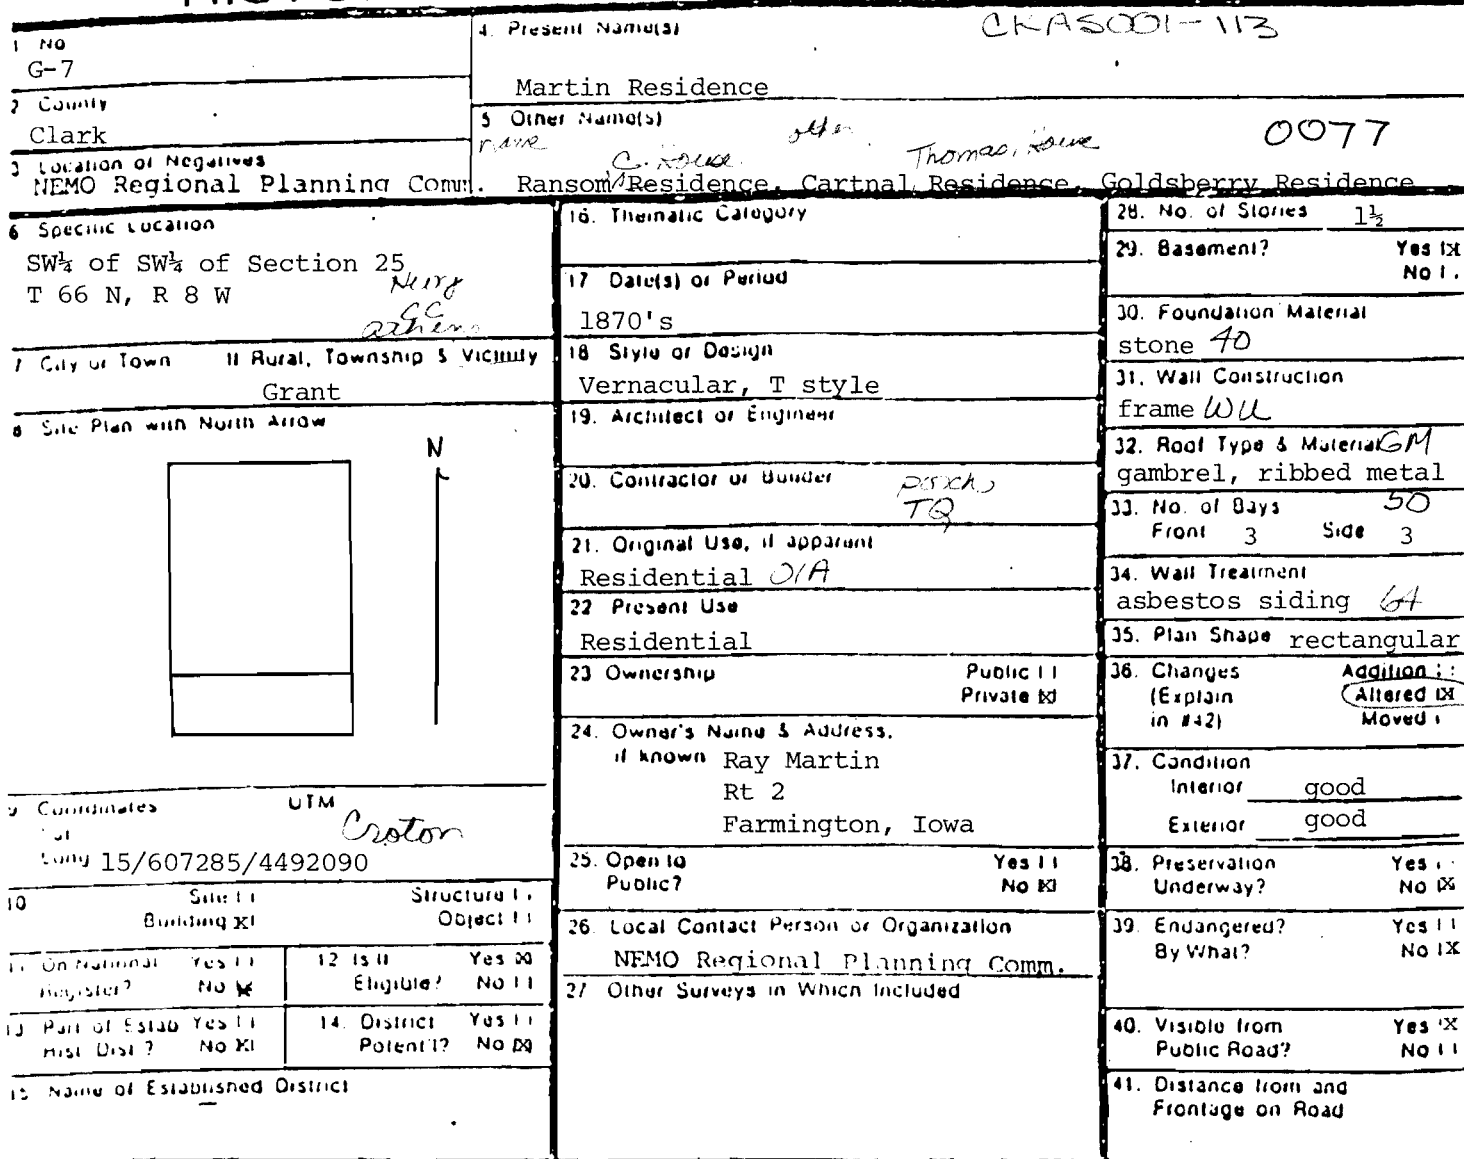 1 No
G-7
2 County
Clark
3 Location of Negatives
NEMO Regional Planning Comm.
4. Present Name(s)
CKAS001-113
Martin Residence
5 Other Name(s)
name
other
0077
C. House
Thomas, House
Ransom Residence, Cartnal Residence, Goldsberry Residence
6 Specific Location
SW¼ of SW¼ of Section 25
T 66 N, R 8 W
athens
7 City or Town If Rural, Township & Vicinity
Grant
8 Site Plan with North Arrow
N
9 Coordinates UTM
Lat
Croton
Long 15/607285/4492090
10 Site [ ] Structure [ ]
Building [X] Object [ ]
11 On National Register? Yes [ ] No [X]
12 Is It Eligible? Yes [X] No [ ]
13 Part of Estab Hist. Dist.? Yes [ ] No [X]
14. District Potent'l? Yes [ ] No [X]
15 Name of Established District
16. Thematic Category
17 Date(s) or Period
1870's
18 Style or Design
Vernacular, T style
19. Architect or Engineer
20. Contractor or Builder
porch
TQ
21. Original Use, if apparent
Residential O1A
22 Present Use
Residential
23 Ownership Public [ ]
Private [X]
24. Owner's Name & Address,
if known Ray Martin
Rt 2
Farmington, Iowa
25. Open to Public? Yes [ ]
No [X]
26. Local Contact Person or Organization
NEMO Regional Planning Comm.
27 Other Surveys in Which Included
28. No. of Stories 1½
29. Basement? Yes [X]
No [ ]
30. Foundation Material
stone 40
31. Wall Construction
frame WU
32. Roof Type & Material GM
gambrel, ribbed metal
33. No. of Bays 50
Front 3 Side 3
34. Wall Treatment
asbestos siding 64
35. Plan Shape rectangular
36. Changes Addition [ ]
(Explain Altered [X]
in #42) Moved [ ]
37. Condition
Interior good
Exterior good
38. Preservation Yes [ ]
Underway? No [X]
39. Endangered? Yes [ ]
By What? No [X]
40. Visible from Yes [X]
Public Road? No [ ]
41. Distance from and
Frontage on Road